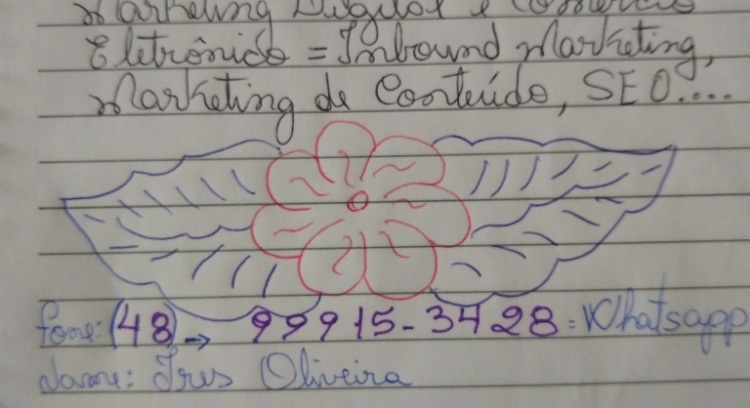 Marketing Digital e Comércio
Eletrônico = Inbound Marketing,
Marketing de Conteúdo, SEO....
fone: (48) → 99915-3428 = Whatsapp
Name: Ires Oliveira